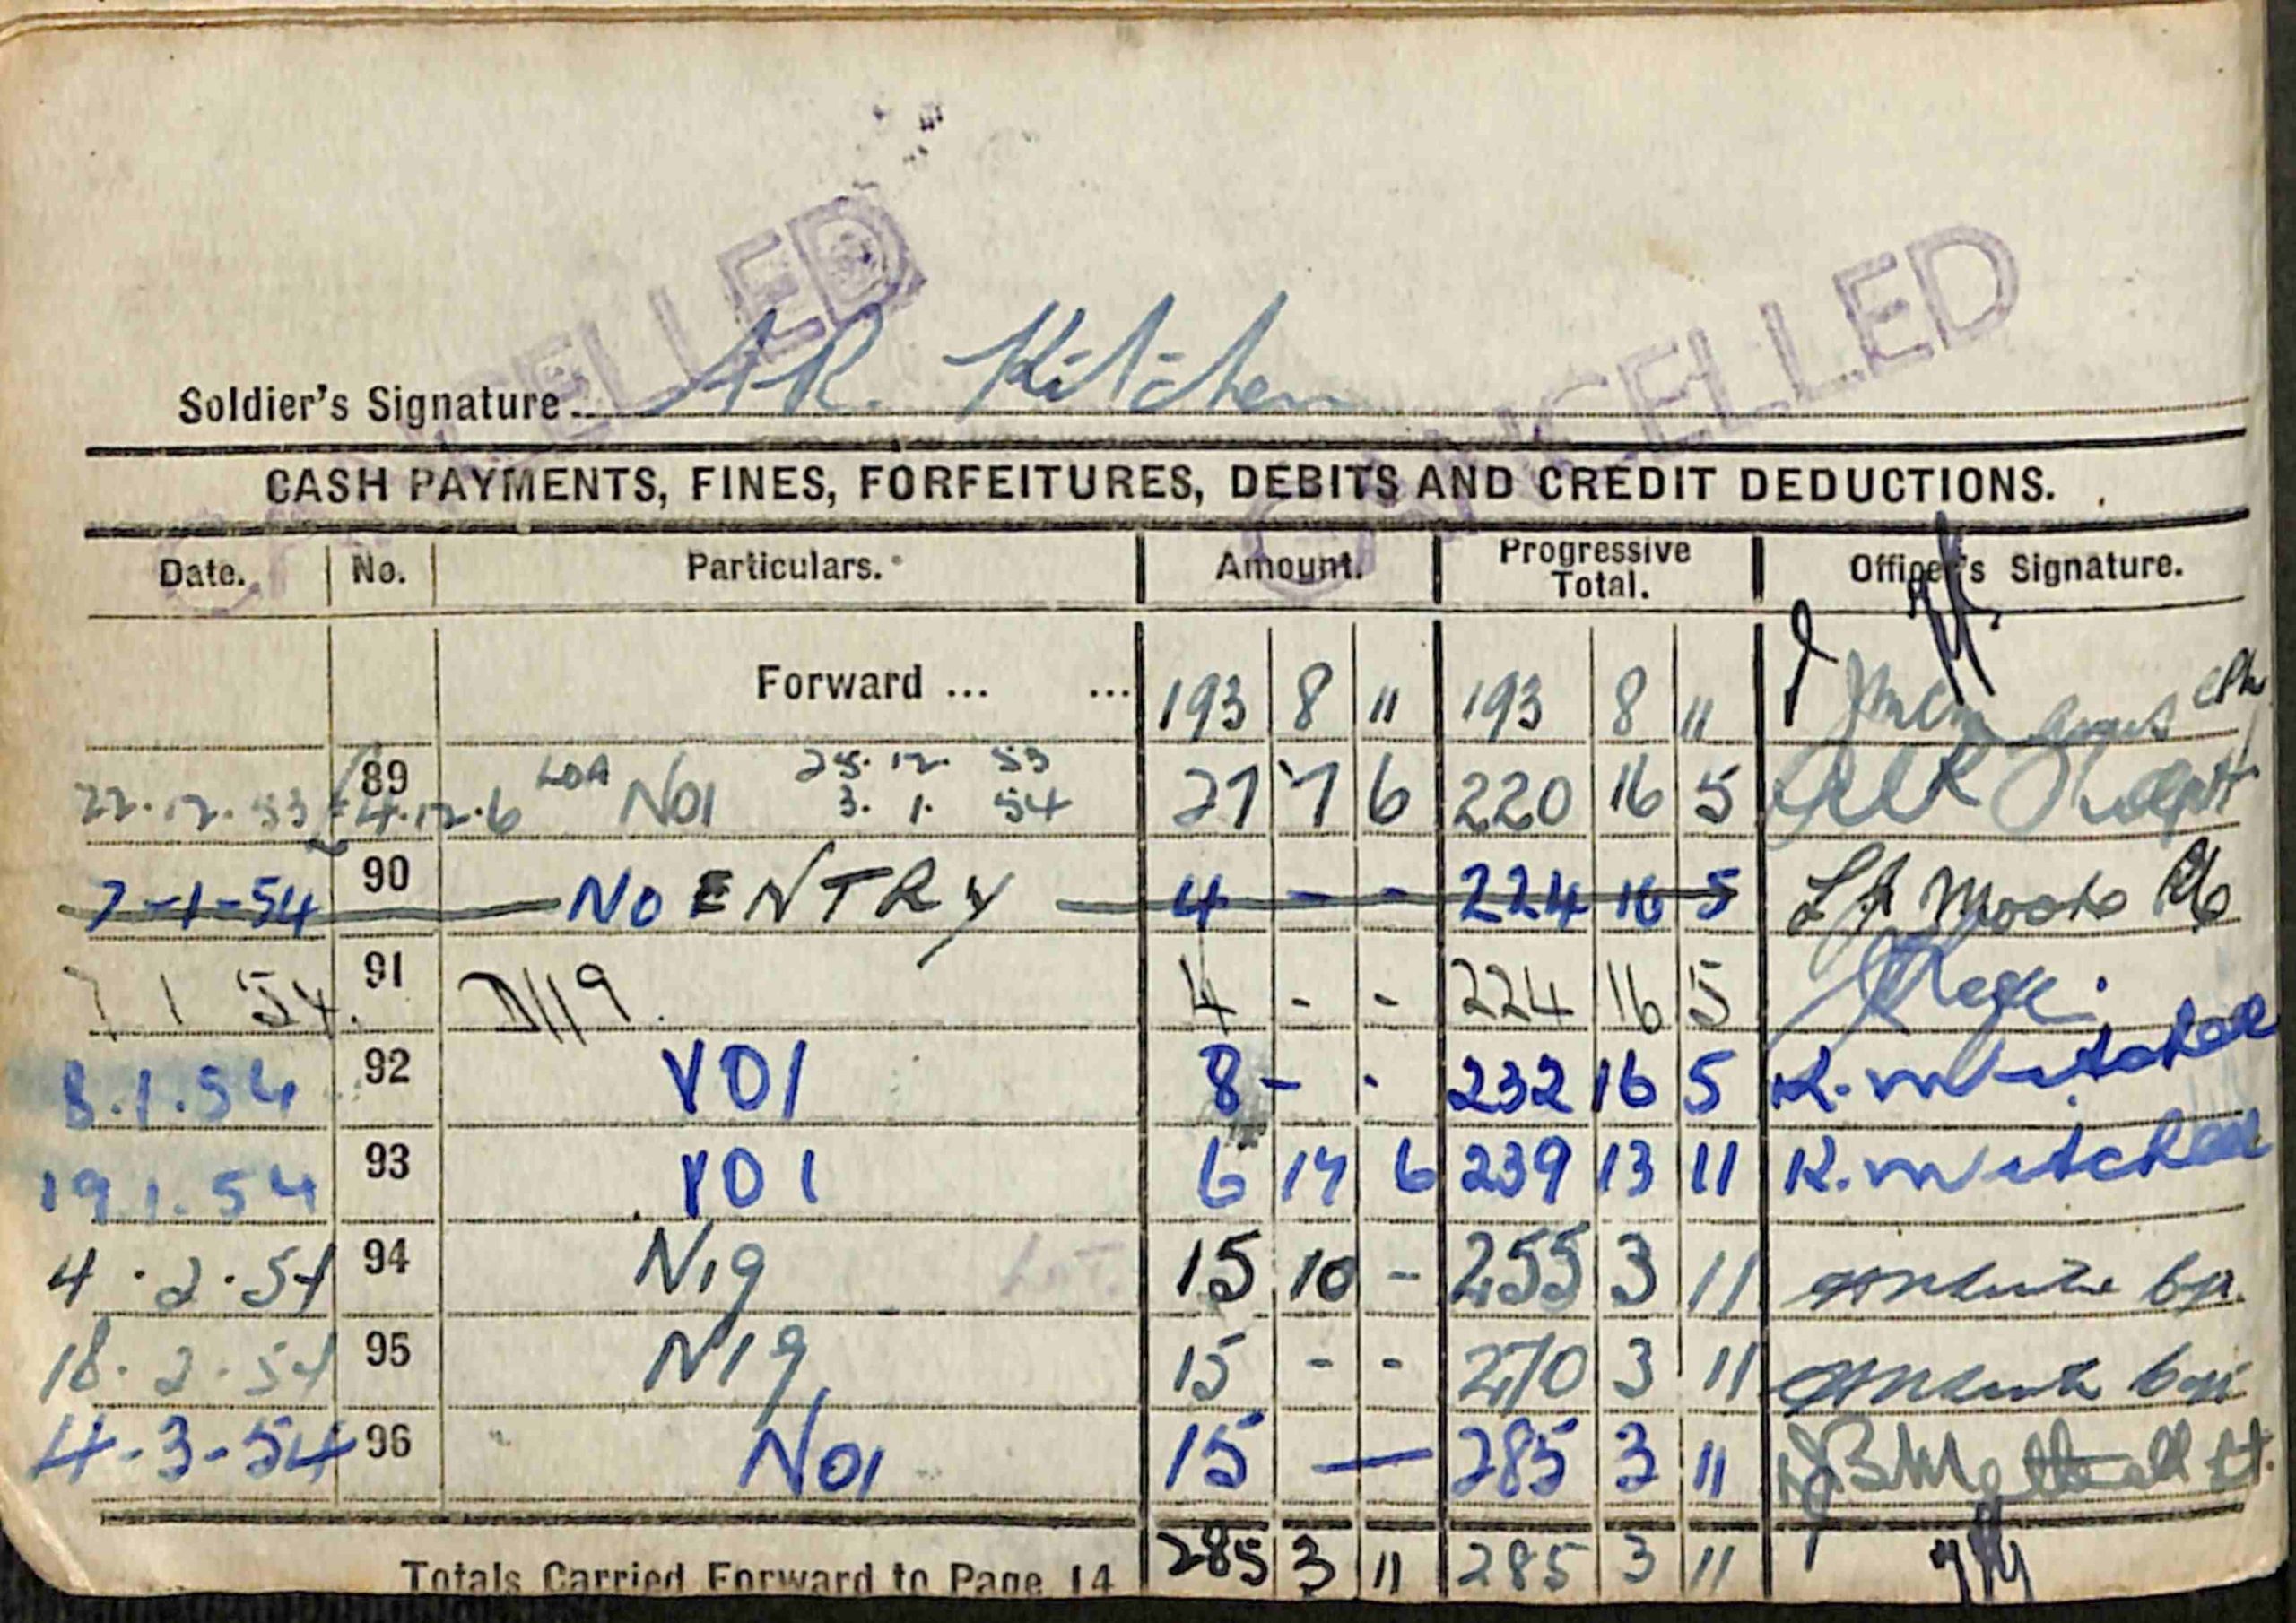 CANCELLED CANCELLED
Soldier's Signature AR. Kitchen
CASH PAYMENTS, FINES, FORFEITURES, DEBITS AND CREDIT DEDUCTIONS.
Date. No. Particulars. Amount. Progressive Total. Officer's Signature.
Forward ... ... 193 8 11 193 8 11
22.12.53 89 4.12.6 LOA N01 25.12.53 3.1.54 27 7 6 220 16 5
7-1-54 90 NO ENTRY 4 - - 224 16 5 Moore
7 1 54. 91 D119. 4 - - 224 16 5
8.1.54 92 Y01 8 - - 232 16 5 K.
19.1.54 93 Y01 6 17 6 239 13 11 K.
4.2.54 94 N19 15 10 - 255 3 11
18.2.54 95 N19 15 - - 270 3 11
4-3-54 96 N01 15 — 285 3 11
Totals Carried Forward to Page 14 285 3 11 285 3 11